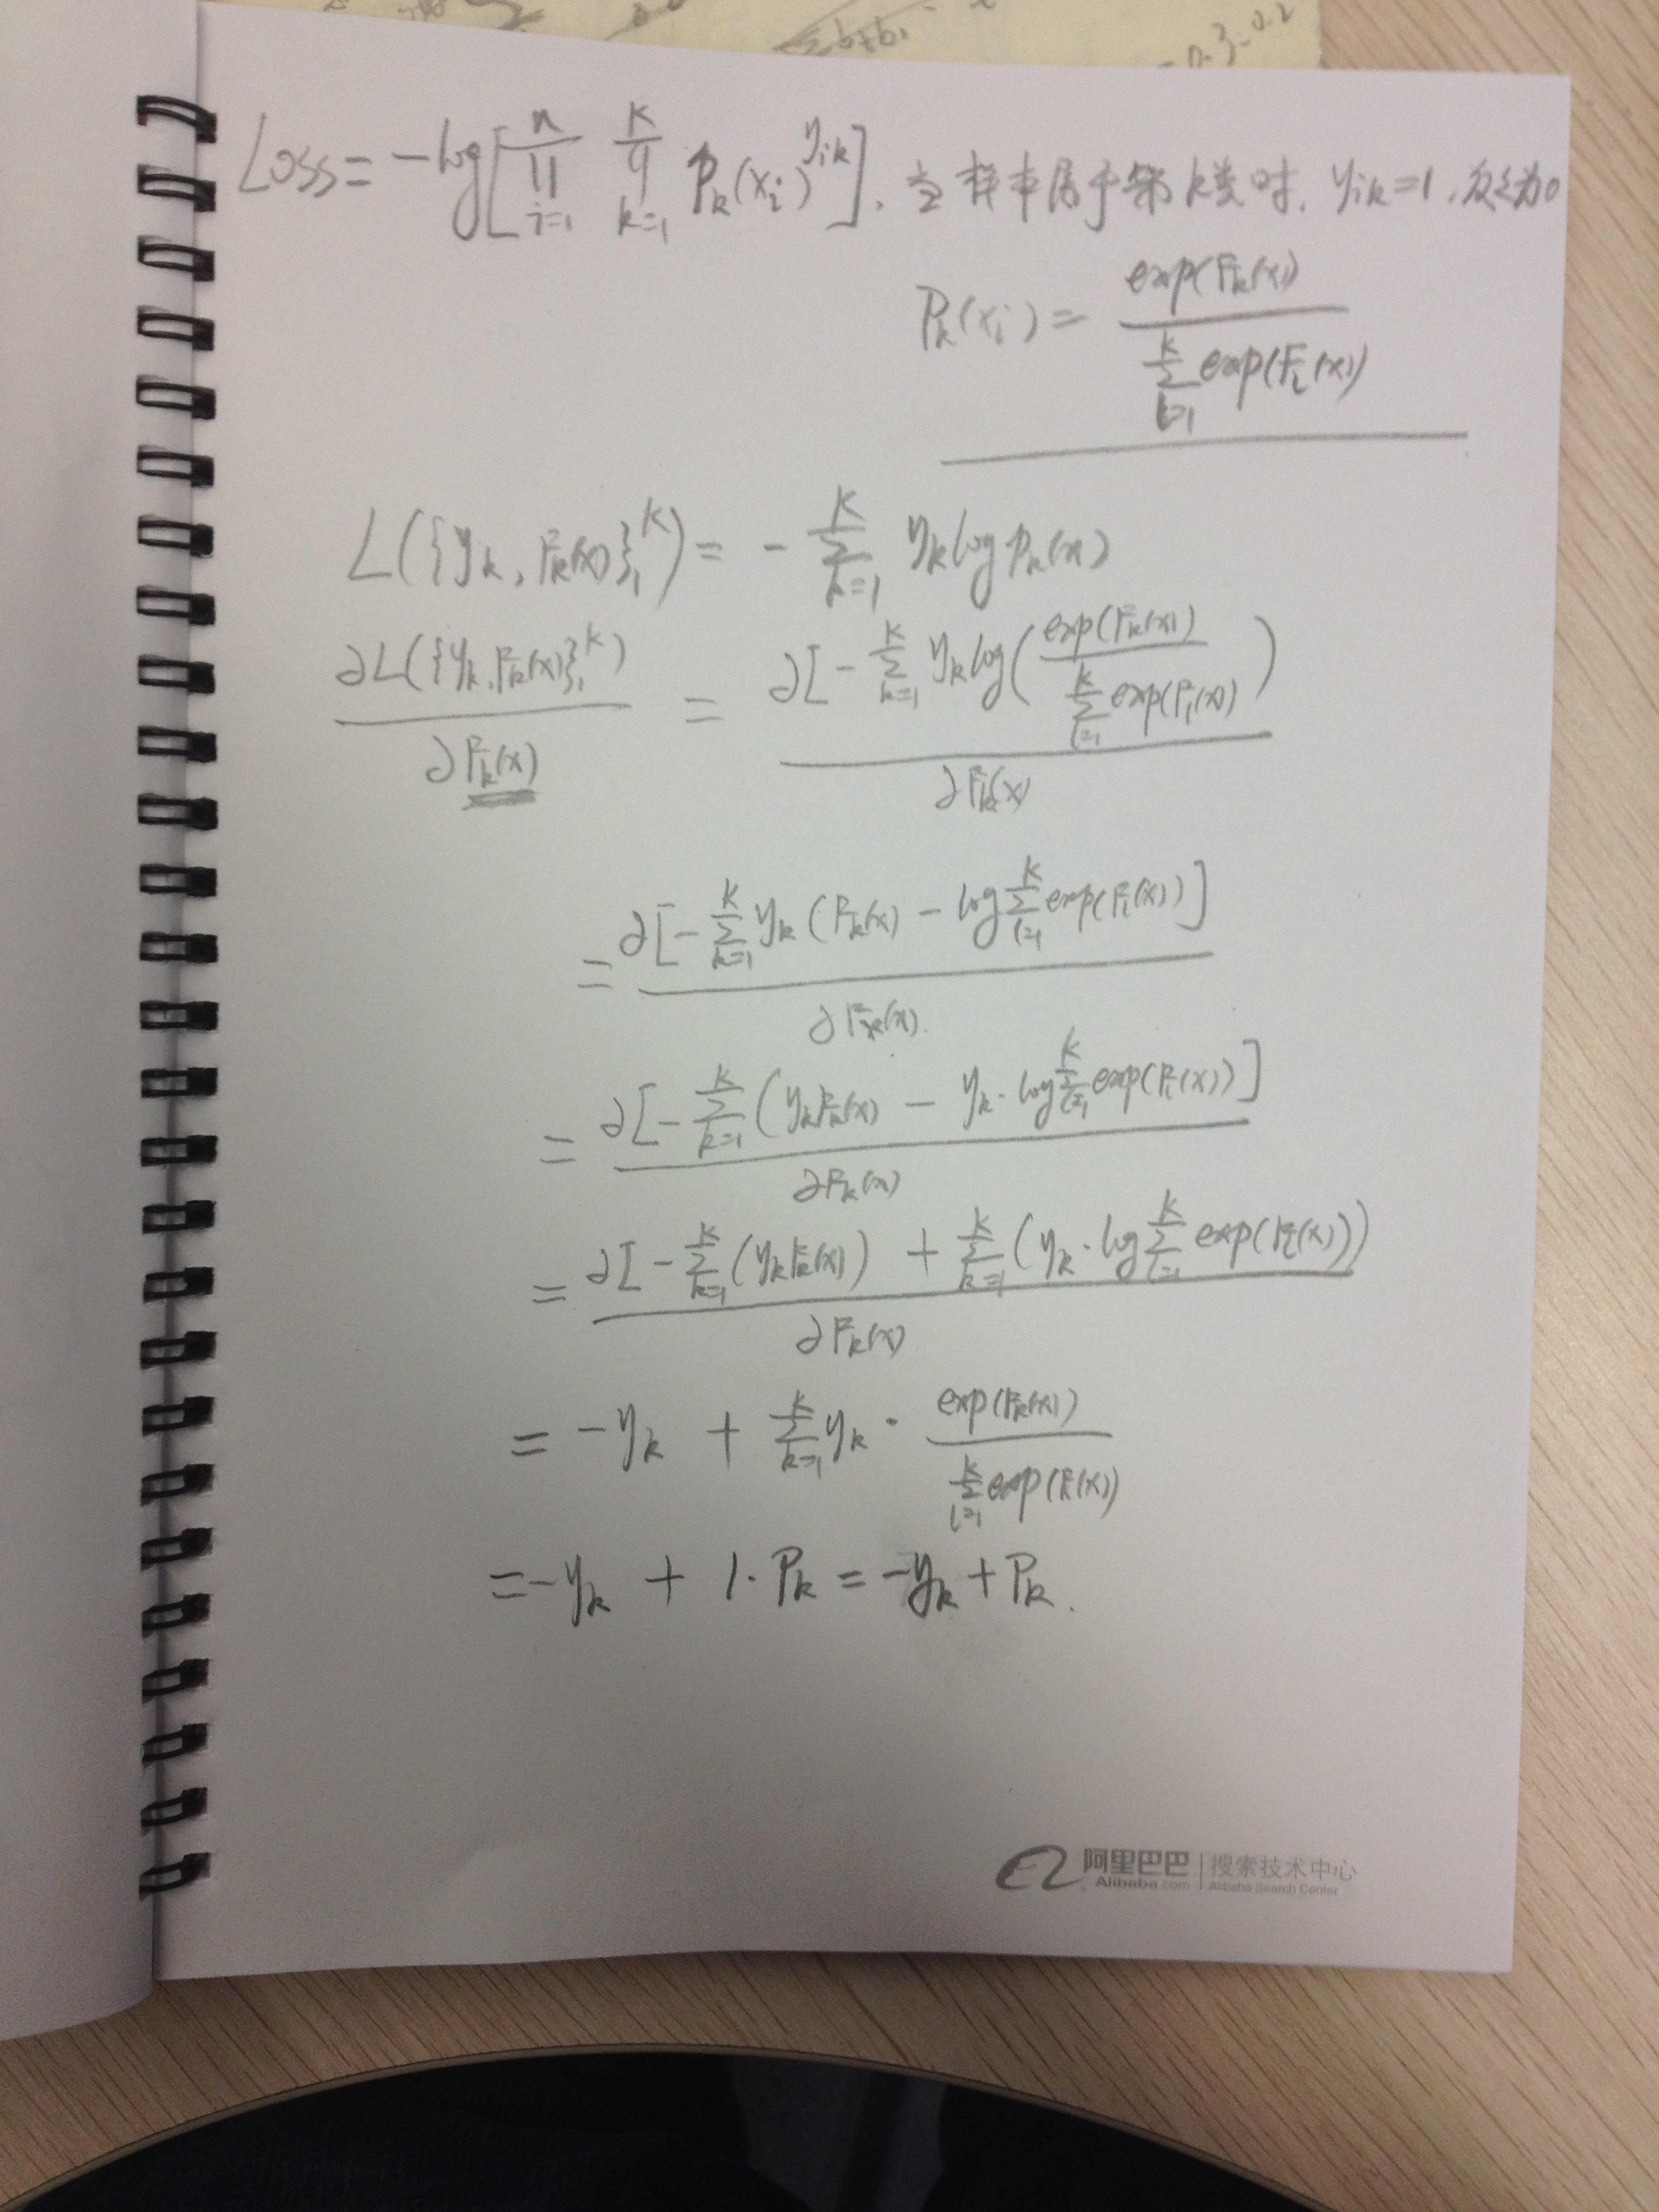 Loss = -log[∏_{i=1}^{n} ∏_{k=1}^{K} p_k(x_i)^{y_{ik}}]. 当样本属于第k类时. y_{ik}=1, 反之为0
P_k(x_i) = exp(F_k(x)) / ∑_{l=1}^{K} exp(F_l(x))
L({y_k, F_k(x)}_1^K) = - ∑_{k=1}^{K} y_k log p_k(x)
∂L({y_k, F_k(x)}_1^K) / ∂F_k(x) = ∂[- ∑_{k=1}^{K} y_k log( exp(F_k(x)) / ∑_{l=1}^{K} exp(F_l(x)) ) / ∂F_k(x)
= ∂[- ∑_{k=1}^{K} y_k (F_k(x) - log ∑_{l=1}^{K} exp(F_l(x))] / ∂F_k(x).
= ∂[- ∑_{k=1}^{K} (y_k F_k(x) - y_k · log ∑_{l=1}^{K} exp(F_l(x))] / ∂F_k(x)
= ∂[- ∑_{k=1}^{K} (y_k F_k(x)) + ∑_{k=1}^{K} (y_k · log ∑_{l=1}^{K} exp(F_l(x))) / ∂F_k(x)
= -y_k + ∑_{k=1}^{K} y_k · exp(F_k(x)) / ∑_{l=1}^{K} exp(F_l(x))
= -y_k + 1 · P_k = -y_k + P_k.
阿里巴巴 | 搜索技术中心
Alibaba.com | Alibaba Search Center